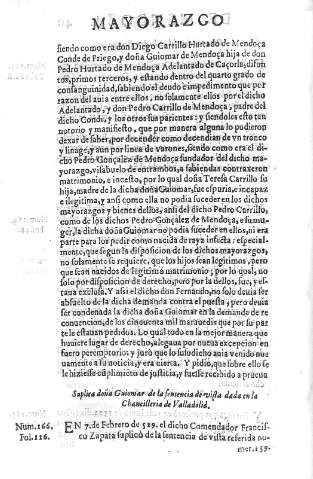 MAYORAZGO
siendo como era don Diego Carrillo Hurtado de Mendoça
Conde de Priego, y doña Guiomar de Mendoça hija de don
Pedro Hurtado de Mendoça Adelantado de Caçorla, difun
tos, primos terceros, y estando dentro del quarto grado de con-
sanguinidad, sabiendo el deudo è impedimento que por
razon del auia entre ellos, no solamente ellos por el dicho
Adelantado, y don Pedro Carrillo de Mendoça, padre del
dicho Conde, y los otros sus parientes: y siendoles esto tan
notorio y manifiesto, que por manera alguna lo pudieron
dexar de saber, por decender como decendian de vn tronco
y linage, y aun por linea de varones, siendo como era el di-
cho Pedro Gonçalez de Mendoça fundador del dicho ma-
yorazgo, visabuelo de entrambos, a sabiendas contraxeron
matrimonio, e incesto, por lo qual doña Teresa Carrillo su
hija, madre de la dicha doña Guiomar, fue espuria, e incapaz
e ilegitima, y ansi como ella no podia suceder en los dichos
mayorazgos y bienes dellos, ansi del dicho Pedro Carrillo,
como de los dichos Pedro Gonçalez de Mendoça, e su mu-
ger, la dicha doña Guiomar no podia suceder en ellos, ni era
parte para los pedir como nacida de rayz infecta: especial-
mente, que segun la disposicion de los dichos mayorazgos,
no solamente se requiere, que los hijos sean legitimos, pero
que sean nacidos de legitimo matrimonio; por lo qual, no
solo por disposicion de derecho, pero por la dellos, fue, y es-
taua exclusa. Y assi el dicho don Fernando, no solo deuia ser
absuelto de la dicha demanda contra el puesta, pero deuia
ser condenada la dicha doña Guiomar en la demanda de re
conuencion, de los cincuenta mil marauedis que por su par
te le estauan pedidos. Lo qual todo en la mejor manera que
huuiere lugar de derecho, alegaua por nueua excepcion en
fuero peremptorios y jurò que lo susodicho auia venido nue
uamente a su noticia, y era cierta. Y pidiò, que sobre ello se
le hiziesse cũplimiento de justicia, y fuesse recibido a prueua.
Suplica doña Guiomar de la sentencia de vista dada en la
Chancilleria de Valladolid.
Num. 166.
Fol. 116.
EN 7. de Febrero de 529. el dicho Comendador Francis-
co Zapata suplicò de la sentencia de vista referida nu-
mer. 159.